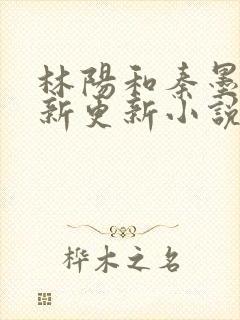 林陽和秦墨
新更新小說
桦木之名